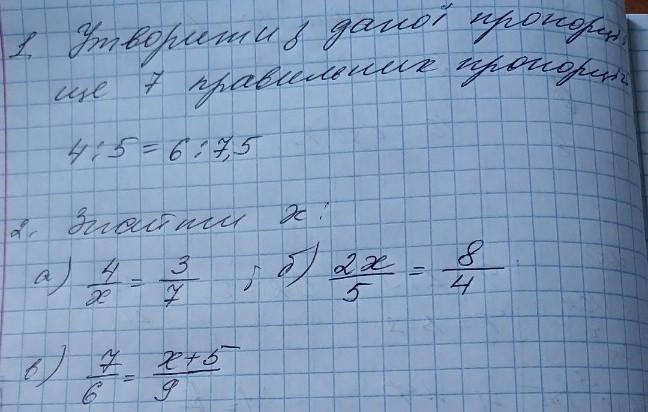 1. Утворити з даної пропорції
ще 7 правильних пропорцій
4 : 5 = 6 : 7,5
2. Знайти x:
а) 4/x = 3/7 ; б) 2x/5 = 8/4
в) 7/6 = x+5/9